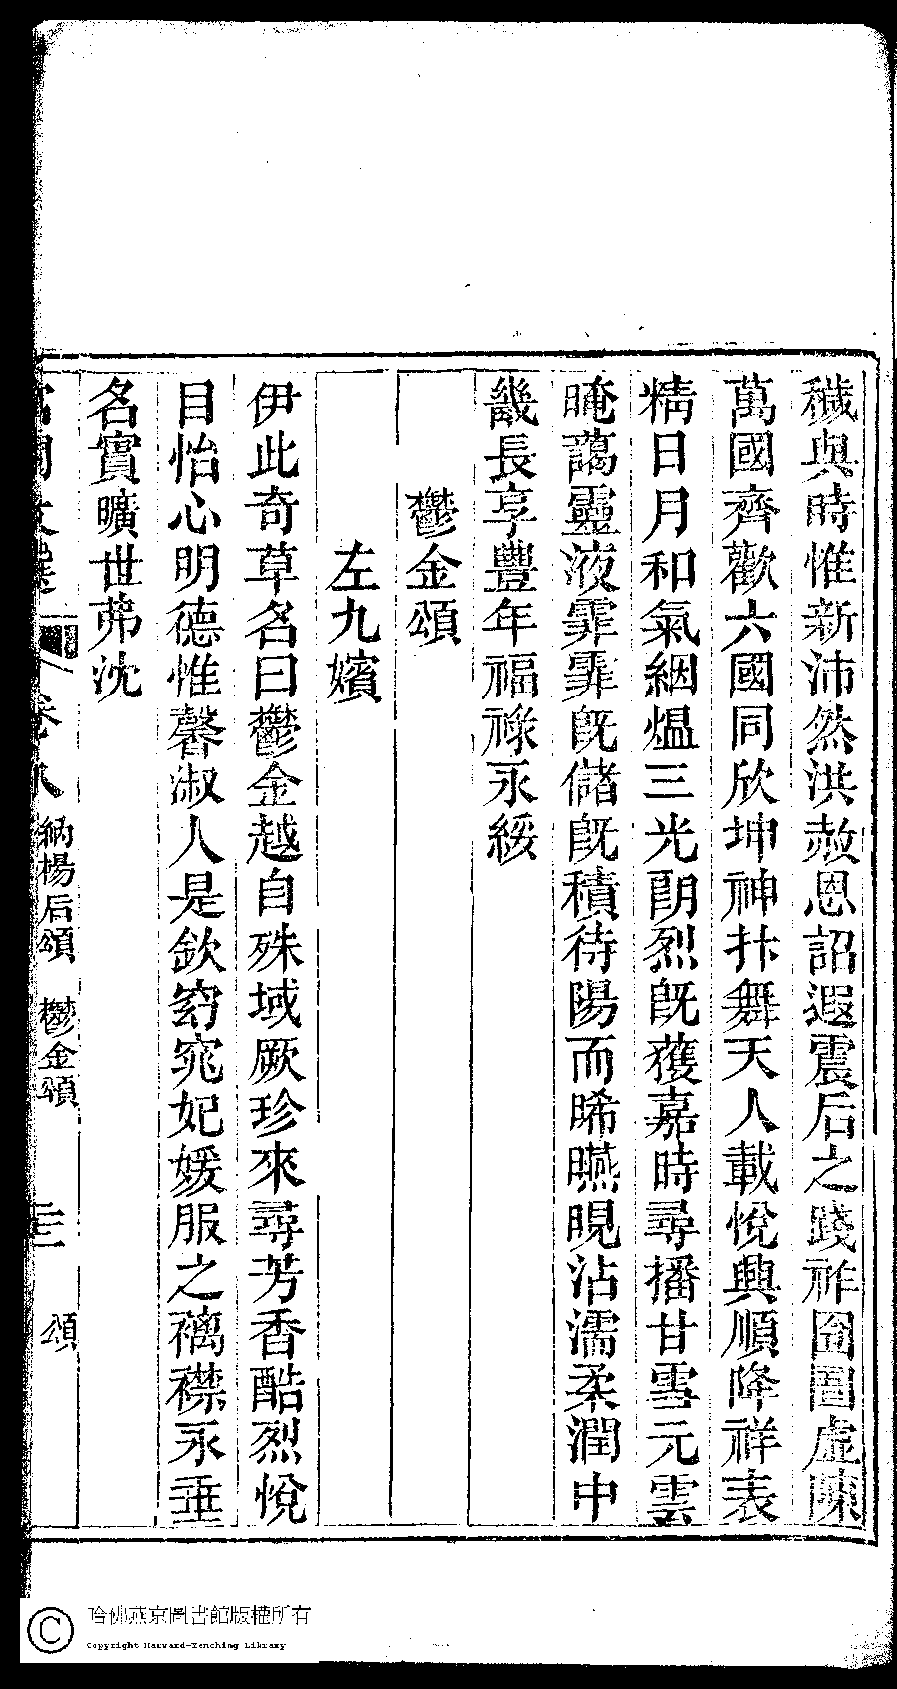 穢與時惟新沛然洪赦恩詔遐震后之踐祚囹圄虛陳
萬國齊歡六國同欣坤神抃舞天人載悅興順降祥表
精日月和氣絪熅三光朗烈旣獲嘉時尋播甘雪元雲
晻藹靈液霏霏旣儲旣積待陽而晞㬫晛沾濡柔潤中
畿長享豐年福祿永綏
鬱金頌
左九嬪
伊此奇草名曰鬱金越自殊域厥珍來尋芳香酷烈悅
目怡心明德惟馨淑人是欽窈窕妃媛服之褵襟永垂
名實曠世弗沈
宮閨文選 卷八 納楊后頌 鬱金頌 三 頌
哈佛燕京圖書館版權所有
Copyright Harvard-Yenching Library